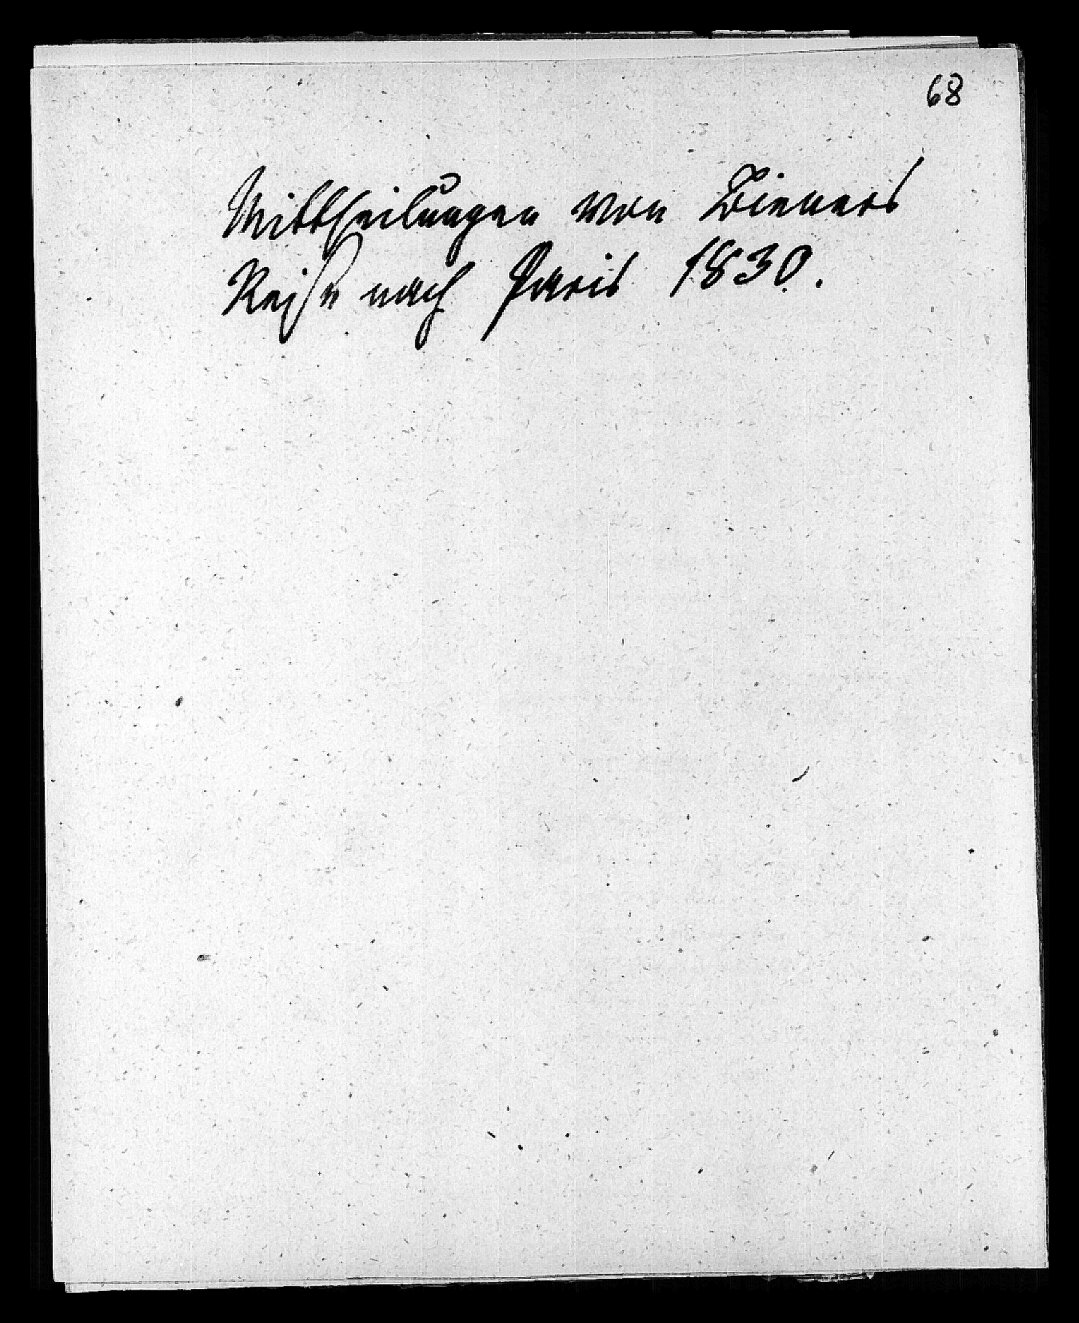 68
Mittheilungen von Bieners
Reise nach Paris 1830.